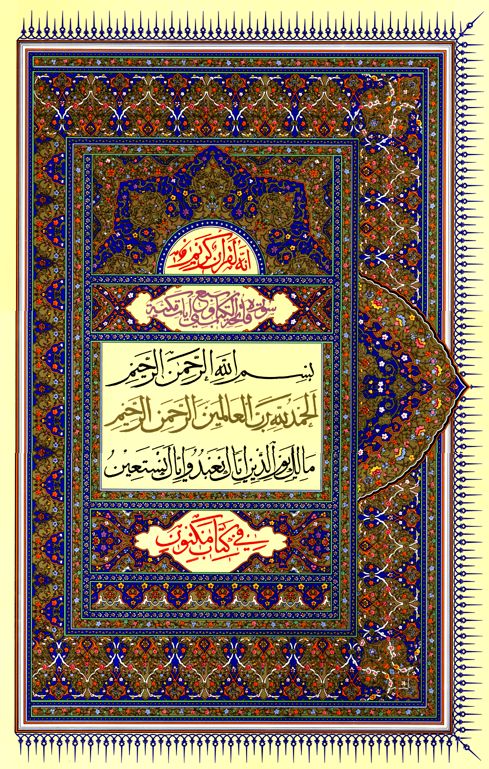 إنه لقرآن كريم
سورة فاتحة الكتاب وهي سبع آيات مكية
بسم الله الرحمن الرحيم
الحمد لله رب العالمين الرحمن الرحيم
مالك يوم الدين إياك نعبد وإياك نستعين
في كتاب مكنون